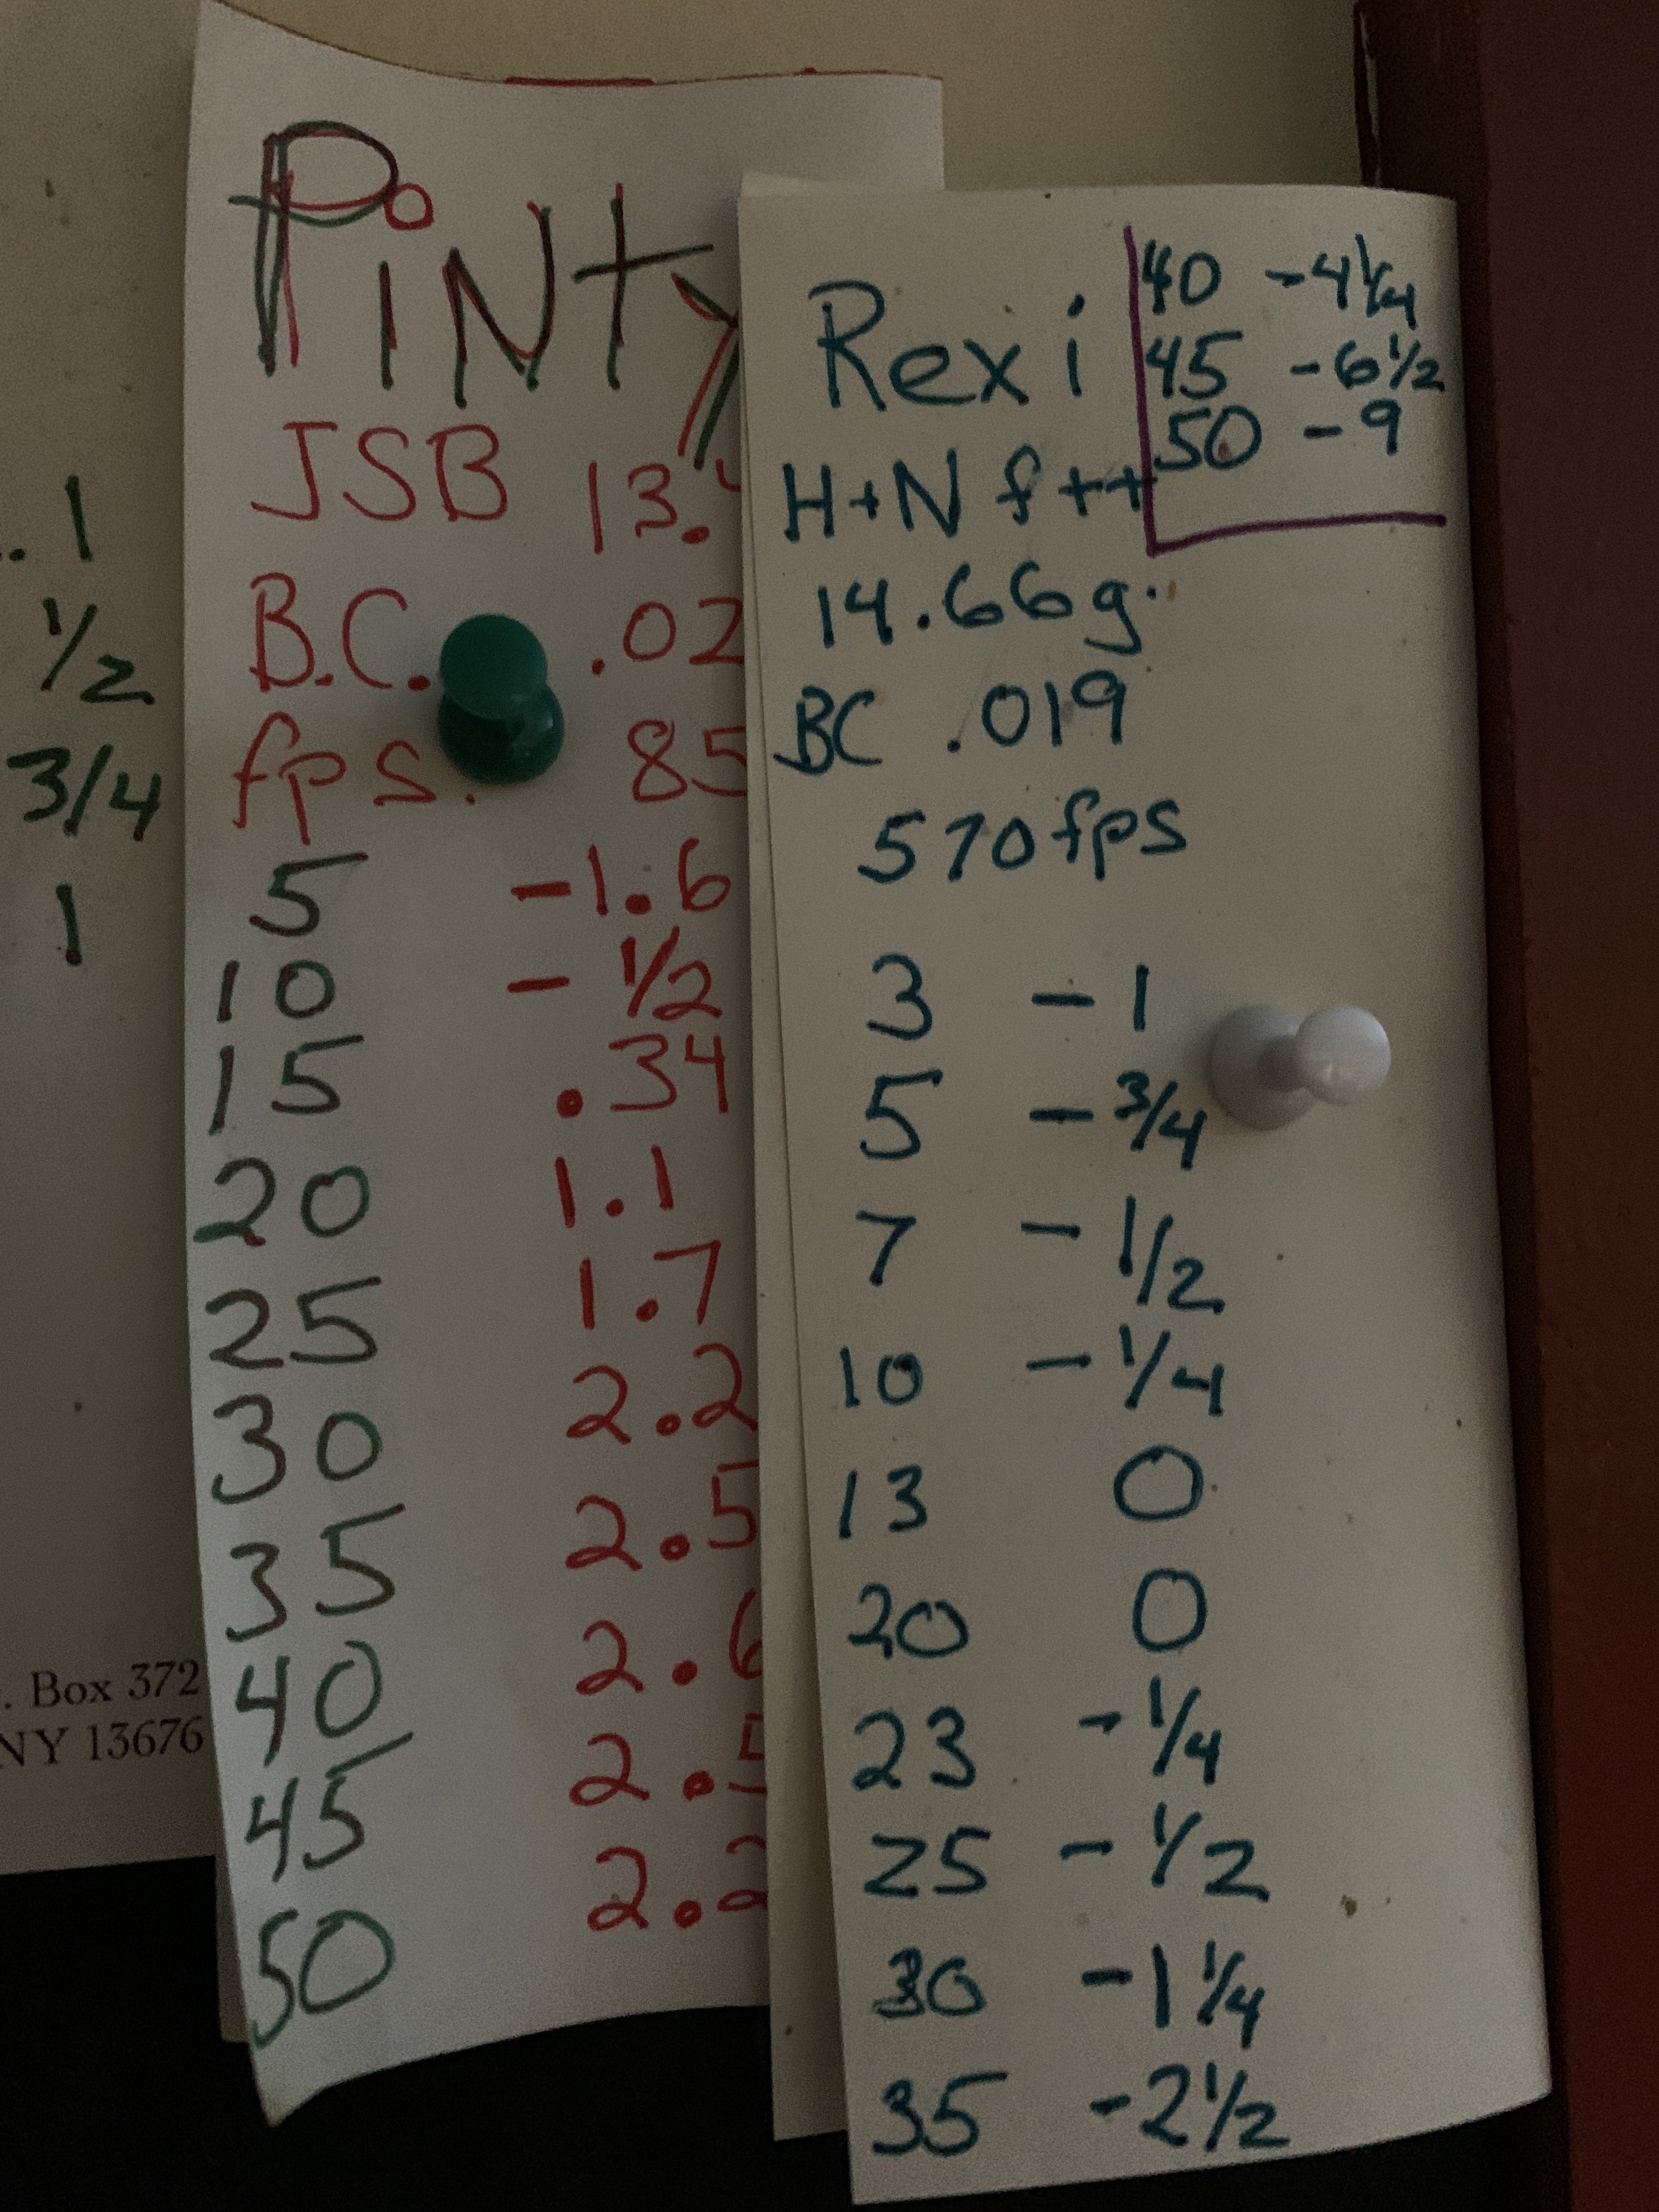 . 1
1/2
3/4
1
. Box 372
NY 13676
PiNty
JSB 13.
B.C. .02
fps. 85
5 -1.6
10 - 1/2
15 .34
20 1.1
25 1.7
30 2.2
35 2.5
40 2.6
45 2.5
50 2.2
Rexi
40 -4 1/4
45 -6 1/2
50 -9
H+N f++
14.66g.
BC .019
570fps
3 - 1
5 - 3/4
7 - 1/2
10 - 1/4
13 0
20 0
23 - 1/4
25 - 1/2
30 -1 1/4
35 -2 1/2